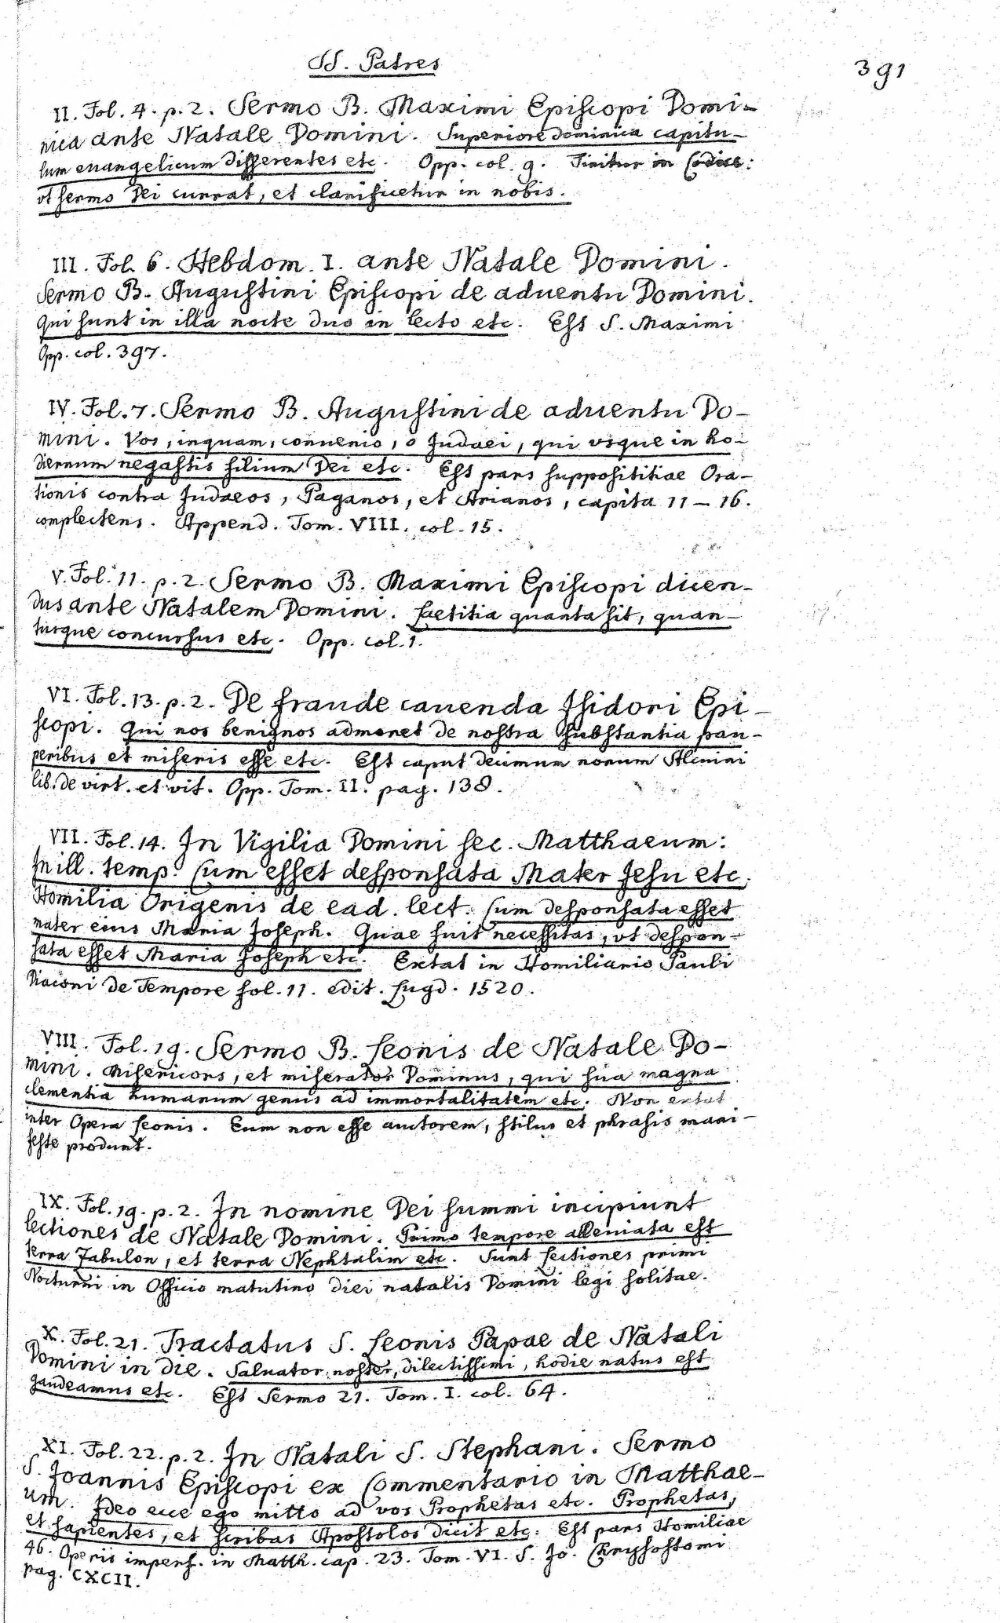 SS. Patres
391
II. Fol. 4. p. 2. Sermo B. Maximi Episcopi Domi-
nica ante Natale Domini. Superiore dominica capitu-
lum euangelicum disserentes etc. Opp. col. 9. Finitur in Codice:
vt sermo Dei currat, et clarificetur in nobis.
III. Fol. 6. Hebdom. I. ante Natale Domini.
Sermo B. Augustini Episcopi de aduentu Domini.
Qui sunt in illa nocte duo in lecto etc. Est S. Maximi
Opp. col. 397.
IV. Fol. 7. Sermo B. Augustini de aduentu Do-
mini. Vos, inquam, conuenio, o Judaei, qui vsque in ho-
diernum negastis filium Dei etc. Est pars supposititiae Ora-
tionis contra Judaeos, Paganos, et Arianos, capita 11 – 16.
complectens. Append. Tom. VIII. col. 15.
V. Fol. 11. p. 2. Sermo B. Maximi Episcopi dicen-
dus ante Natalem Domini. Laetitia quanta sit, quan-
tusque concursus etc. Opp. col. 1.
VI. Fol. 13. p. 2. De fraude cauenda Isidori Epi-
scopi. Qui nos benignos admonet de nostra substantia pau-
peribus et miseris esse etc. Est caput decimum nonum Alcuini
lib. de virt. et vit. Opp. Tom. II. pag. 138.
VII. Fol. 14. In Vigilia Domini sec. Matthaeum:
In ill. temp. Cum esset desponsata Mater Jesu etc.
Homilia Origenis de ead. lect. Cum desponsata esset
mater eius Maria Joseph. Quae fuit necessitas, vt despon-
sata esset Maria Joseph etc. Extat in Homiliario Pauli
Diaconi de Tempore fol. 11. edit. Lugd. 1520.
VIII. Fol. 19. Sermo B. Leonis de Natale Do-
mini. Misericors, et miserator Dominus, qui sua magna
clementia humanum genus ad immortalitatem etc. Non extat
inter Opera Leonis. Eum non esse auctorem, stilus et phrasis mani-
feste produnt.
IX. Fol. 19. p. 2. In nomine Dei summi incipiunt
lectiones de Natale Domini. Primo tempore alleuiata est
terra Zabulon, et terra Nephtalim etc. Sunt Lectiones primi
Nocturni in Officio matutino diei natalis Domini legi solitae.
X. Fol. 21. Tractatus S. Leonis Papae de Natali
Domini in die. Saluator noster, dilectissimi, hodie natus est
gaudeamus etc. Est Sermo 21. Tom. I. col. 64.
XI. Fol. 22. p. 2. In Natali S. Stephani. Sermo
S. Joannis Episcopi ex Commentario in Matthae-
um. Ideo ecce ego mitto ad vos Prophetas etc. Prophetas,
et sapientes, et scribas Apostolos dicit etc. Est pars Homiliae
46. Operis imperf. in Matth. cap. 23. Tom. VI. S. Jo. Chrysostomi
pag. CXCII.